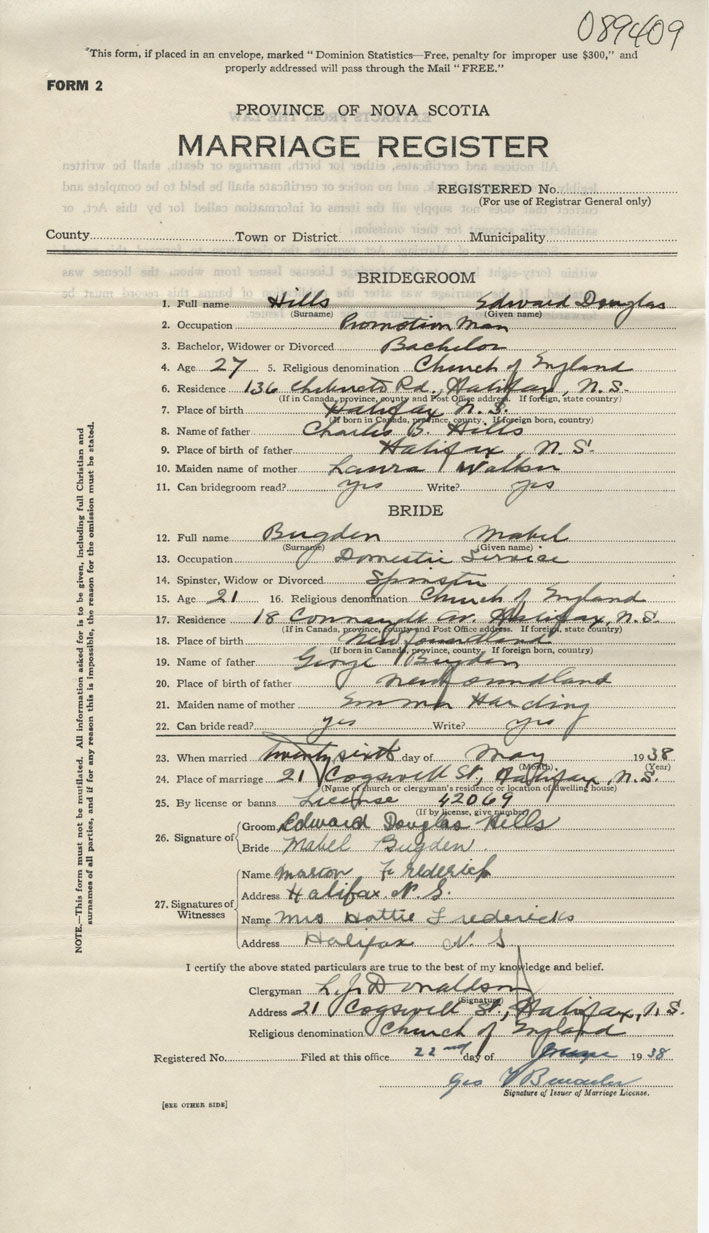 089409
"This form, if placed in an envelope, marked "Dominion Statistics—Free, penalty for improper use $300," and
properly addressed will pass through the Mail "FREE."
FORM 2
PROVINCE OF NOVA SCOTIA
MARRIAGE REGISTER
REGISTERED No.
(For use of Registrar General only)
County Town or District Municipality
BRIDEGROOM
1. Full name Hills Edward Douglas
(Surname) (Given name)
2. Occupation Promotion Man
3. Bachelor, Widower or Divorced Bachelor
4. Age 27 5. Religious denomination Church of England
6. Residence 136 Chebucto Rd., Halifax, N.S.
(If in Canada, province, county and Post Office address. If foreign, state country)
7. Place of birth Halifax N.S.
(If born in Canada, province, county. If foreign born, country)
8. Name of father Charles B. Hills
9. Place of birth of father Halifax, N.S.
10. Maiden name of mother Laura Walker
11. Can bridegroom read? yes Write? yes
BRIDE
12. Full name Bugden Mabel
(Surname) (Given name)
13. Occupation Domestic Service
14. Spinster, Widow or Divorced Spinster
15. Age 21 16. Religious denomination Church of England
17. Residence 18 Connaught Av. Halifax, N.S.
(If in Canada, province, county and Post Office address. If foreign, state country)
18. Place of birth Newfoundland
(If born in Canada, province, county. If foreign born, country)
19. Name of father George Bugden
20. Place of birth of father Newfoundland
21. Maiden name of mother Emma Harding
22. Can bride read? yes Write? yes
23. When married twenty sixth day of May 1938
(Month) (Year)
24. Place of marriage 21 Cogswell St., Halifax, N.S.
(Name of church or clergyman's residence or location of dwelling house)
25. By license or banns License 42069
(If by license, give number)
26. Signature of Groom Edward Douglas Hills
Bride Mabel Bugden
27. Signatures of Witnesses
Name Frederick
Address Halifax N.S.
Name Mrs Hattie Fredericks
Address Halifax N.S.
I certify the above stated particulars are true to the best of my knowledge and belief.
Clergyman L.J. Donaldson
(Signature)
Address 21 Cogswell St., Halifax, N.S.
Religious denomination Church of England
Registered No. Filed at this office 22nd day of 1938
Geo
Signature of Issuer of Marriage License.
[SEE OTHER SIDE]
NOTE.—This form must not be mutilated. All information asked for is to be given, including full Christian and
surnames of all parties, and if for any reason this is impossible, the reason for the omission must be stated.